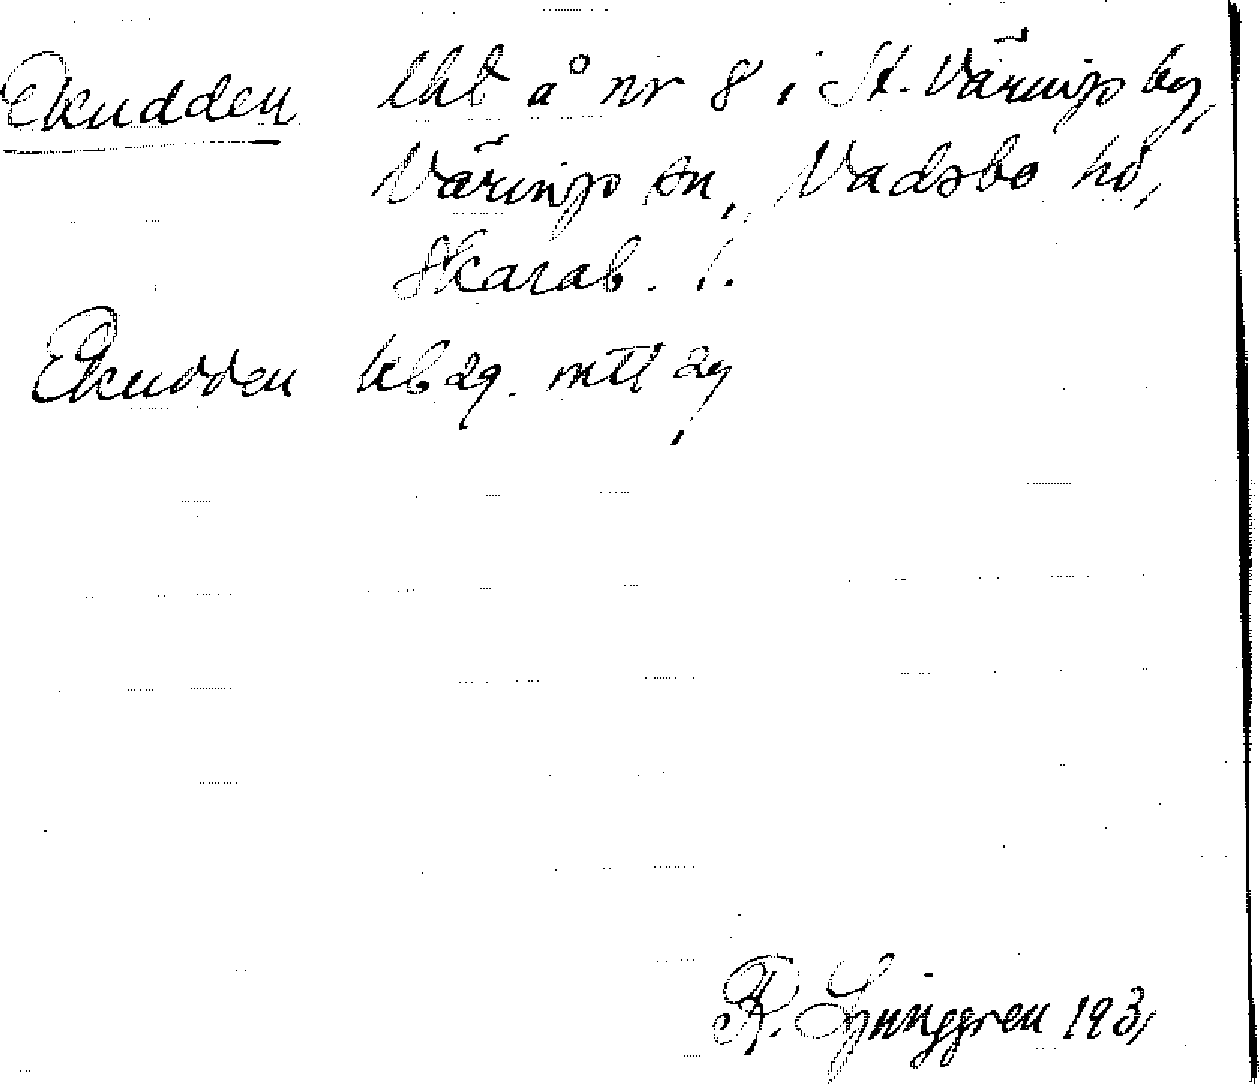 Ekudden lht å nr 8 i St. Värings by,
Värings sn, Vadsbo hd,
Skarab. l.
Ekudden hb 29. mtl 29
R. Ljunggren 193